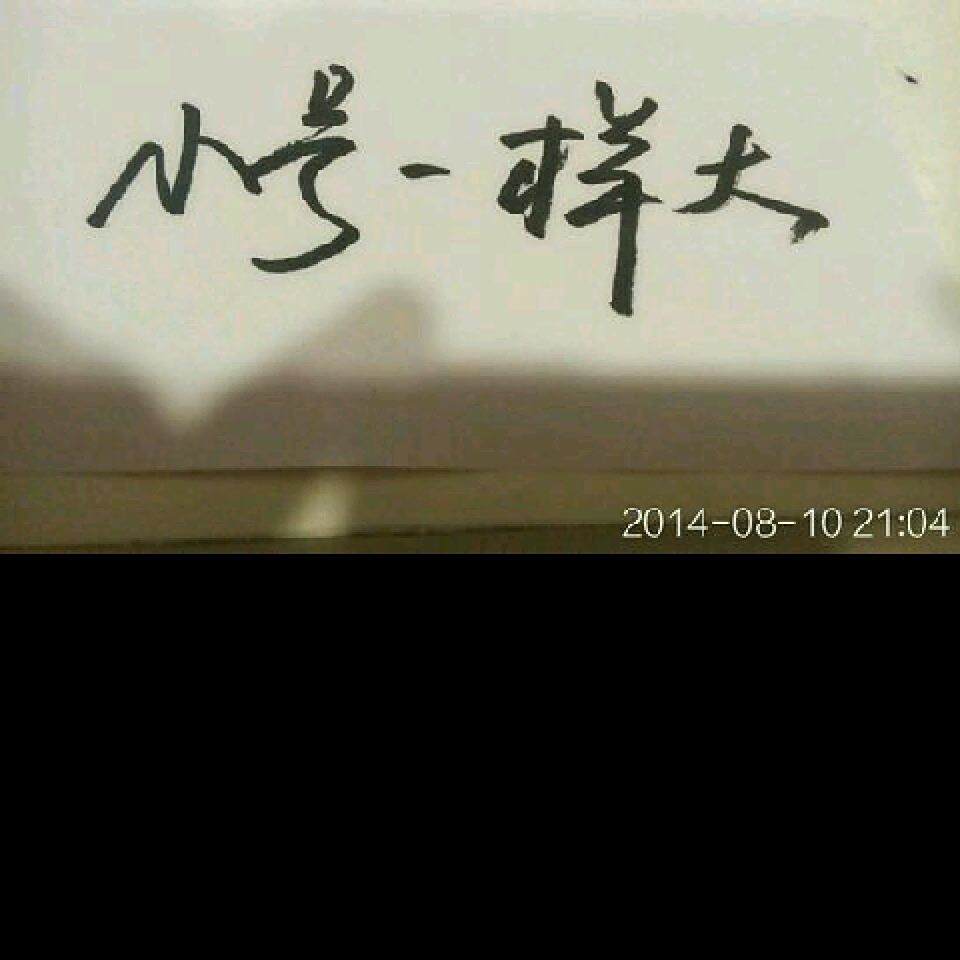 小号一样大
2014-08-10 21:04